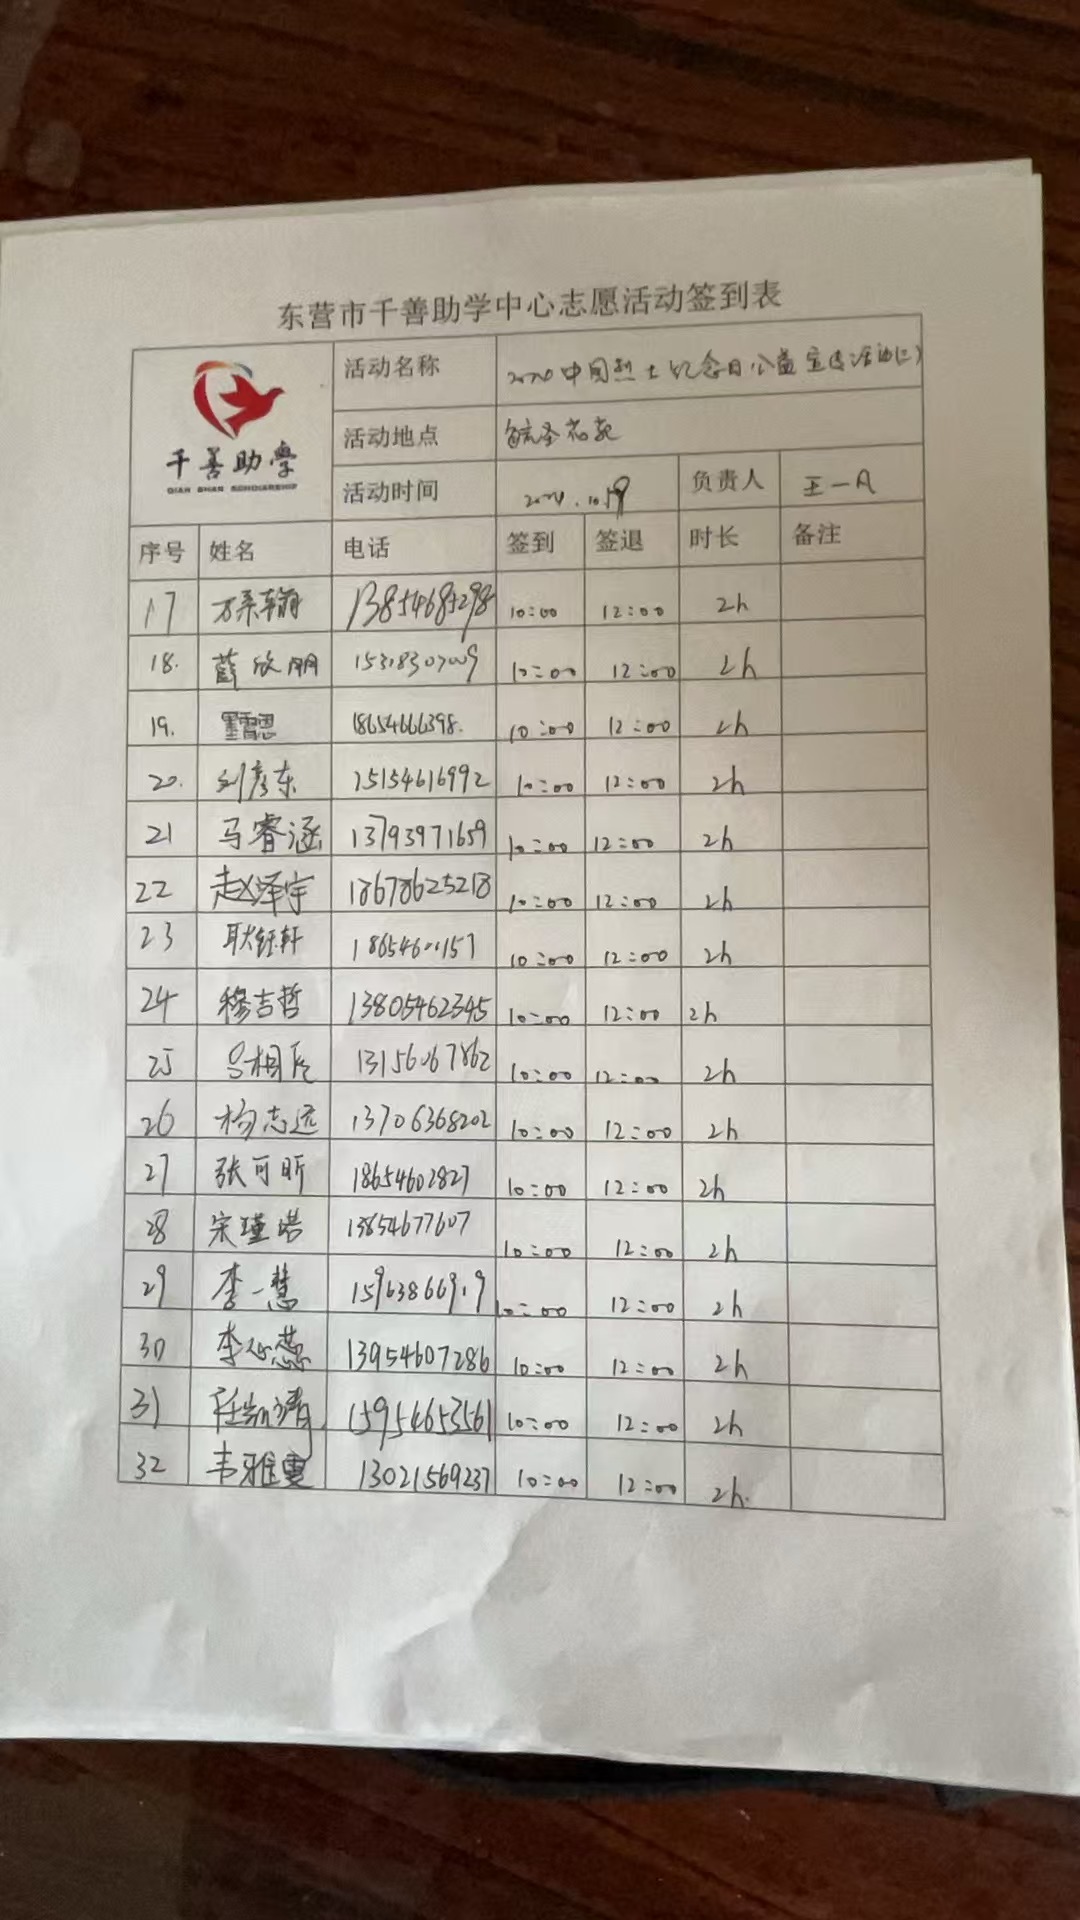 东营市千善助学中心志愿活动签到表
千善助学
QIAN SHAN SCHOLARSHIP
活动名称 中国烈士纪念日公益宣传活动(二)
活动地点
活动时间 负责人 王一凡
序号 姓名 电话 签到 签退 时长 备注
17 13854685298 10:00 12:00 2h
18. 薛欣朋 15318307009 10:00 12:00 2h
19. 18654666398. 10:00 12:00 2h
20. 刘彦东 15154616992 10:00 12:00 2h
21 马睿涵 13793971659 10:00 12:00 2h
22 赵泽宇 18678625218 10:00 12:00 2h
23 耿钰轩 18654600157 10:00 12:00 2h
24 穆吉哲 13805462345 10:00 12:00 2h
25 吕相辰 13156067862 10:00 12:00 2h
26 杨志远 13706368202 10:00 12:00 2h
27 张可昕 18654602827 10:00 12:00 2h
28 宋瑾 13854677607 10:00 12:00 2h
29 李一慧 15963866919 10:00 12:00 2h
30 李心蕊 13954607286 10:00 12:00 2h
31 任凯靖 15954653561 10:00 12:00 2h
32 韦雅雯 13021569237 10:00 12:00 2h.